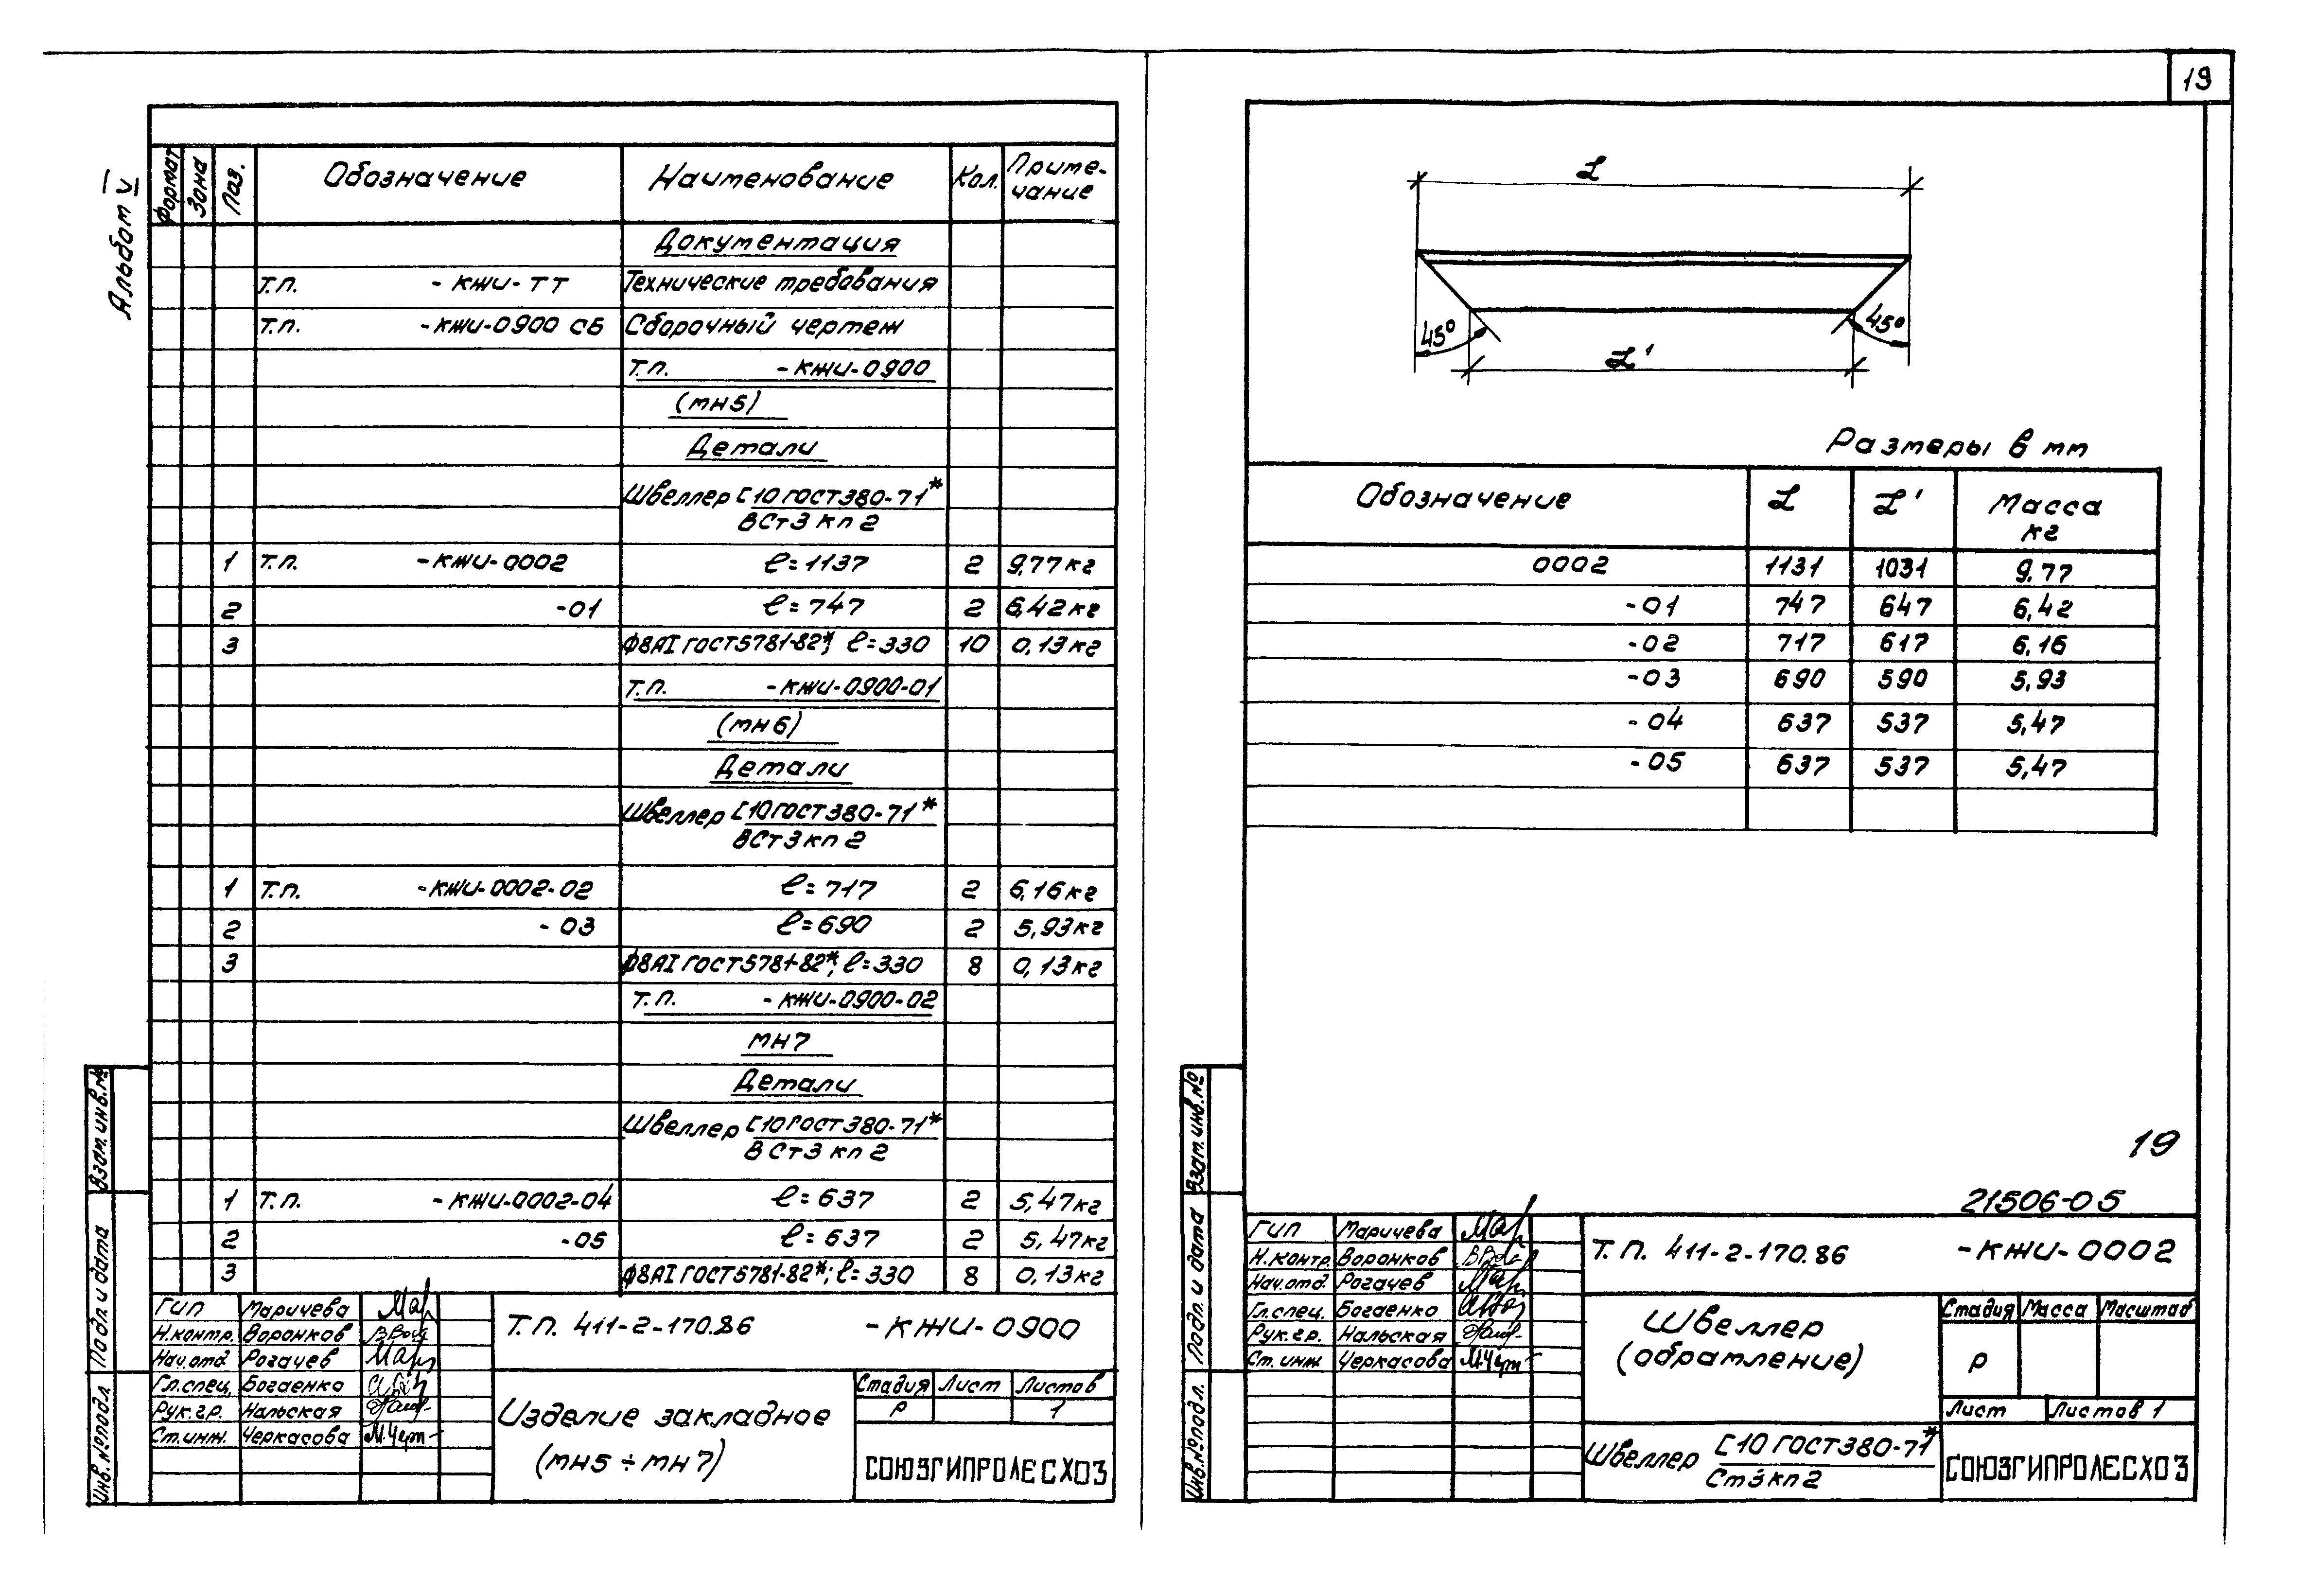 19
Альбом IV
Формат Зона Поз. Обозначение Наименование Кол. Приме-
чание
Документация
Т.п. -КЖИ-ТТ Технические требования
Т.п. -КЖИ-0900 СБ Сборочный чертеж
Т.п. -КЖИ-0900
(МН5)
Детали
Швеллер [10 ГОСТ380-71*
ВСт3 кп2
1 Т.п. -КЖИ-0002 ℓ=1137 2 9,77кг
2 -01 ℓ=747 2 6,42кг
3 Ф8АI ГОСТ5781-82*, ℓ=330 10 0,13кг
Т.п. -КЖИ-0900-01
(МН6)
Детали
Швеллер [10 ГОСТ380-71*
ВСт3кп2
1 Т.п. -КЖИ-0002-02 ℓ=717 2 6,16кг
2 -03 ℓ=690 2 5,93кг
3 Ф8АI ГОСТ5781-82*, ℓ=330 8 0,13кг
Т.п. -КЖИ-0900-02
МН7
Детали
Швеллер [10 ГОСТ380-71*
ВСт3 кп2
1 Т.п. -КЖИ-0002-04 ℓ=637 2 5,47кг
2 -05 ℓ=637 2 5,47кг
3 Ф8АI ГОСТ5781-82*; ℓ=330 8 0,13кг
ГИП Маричева
Н.контр. Воронков
Нач.отд. Рогачев
Гл.спец. Богаенко
Рук.гр. Нальская
Ст.инж. Черкасова
Т.П. 411-2-170.86 -КЖИ-0900
Изделие закладное
(МН5÷МН7)
Стадия Лист Листов
Р 1
СОЮЗГИПРОЛЕСХОЗ
Взам.инв.№
Подп. и дата
Инв.№подл.
L
45° 45°
L'
Размеры в мм
Обозначение L L' Масса
кг
0002 1131 1031 9,77
-01 747 647 6,42
-02 717 617 6,16
-03 690 590 5,93
-04 637 537 5,47
-05 637 537 5,47
19
21506-05
ГИП Маричева
Н.контр. Воронков
Нач.отд. Рогачев
Гл.спец. Богаенко
Рук.гр. Нальская
Ст.инж. Черкасова
Т.П. 411-2-170.86 -КЖИ-0002
Швеллер
(обрамление)
Стадия Масса Масштаб
Р
Лист Листов 1
Швеллер [10 ГОСТ380-71*
Ст3кп2
СОЮЗГИПРОЛЕСХОЗ
Взам.инв.№
Подп. и дата
Инв.№подл.